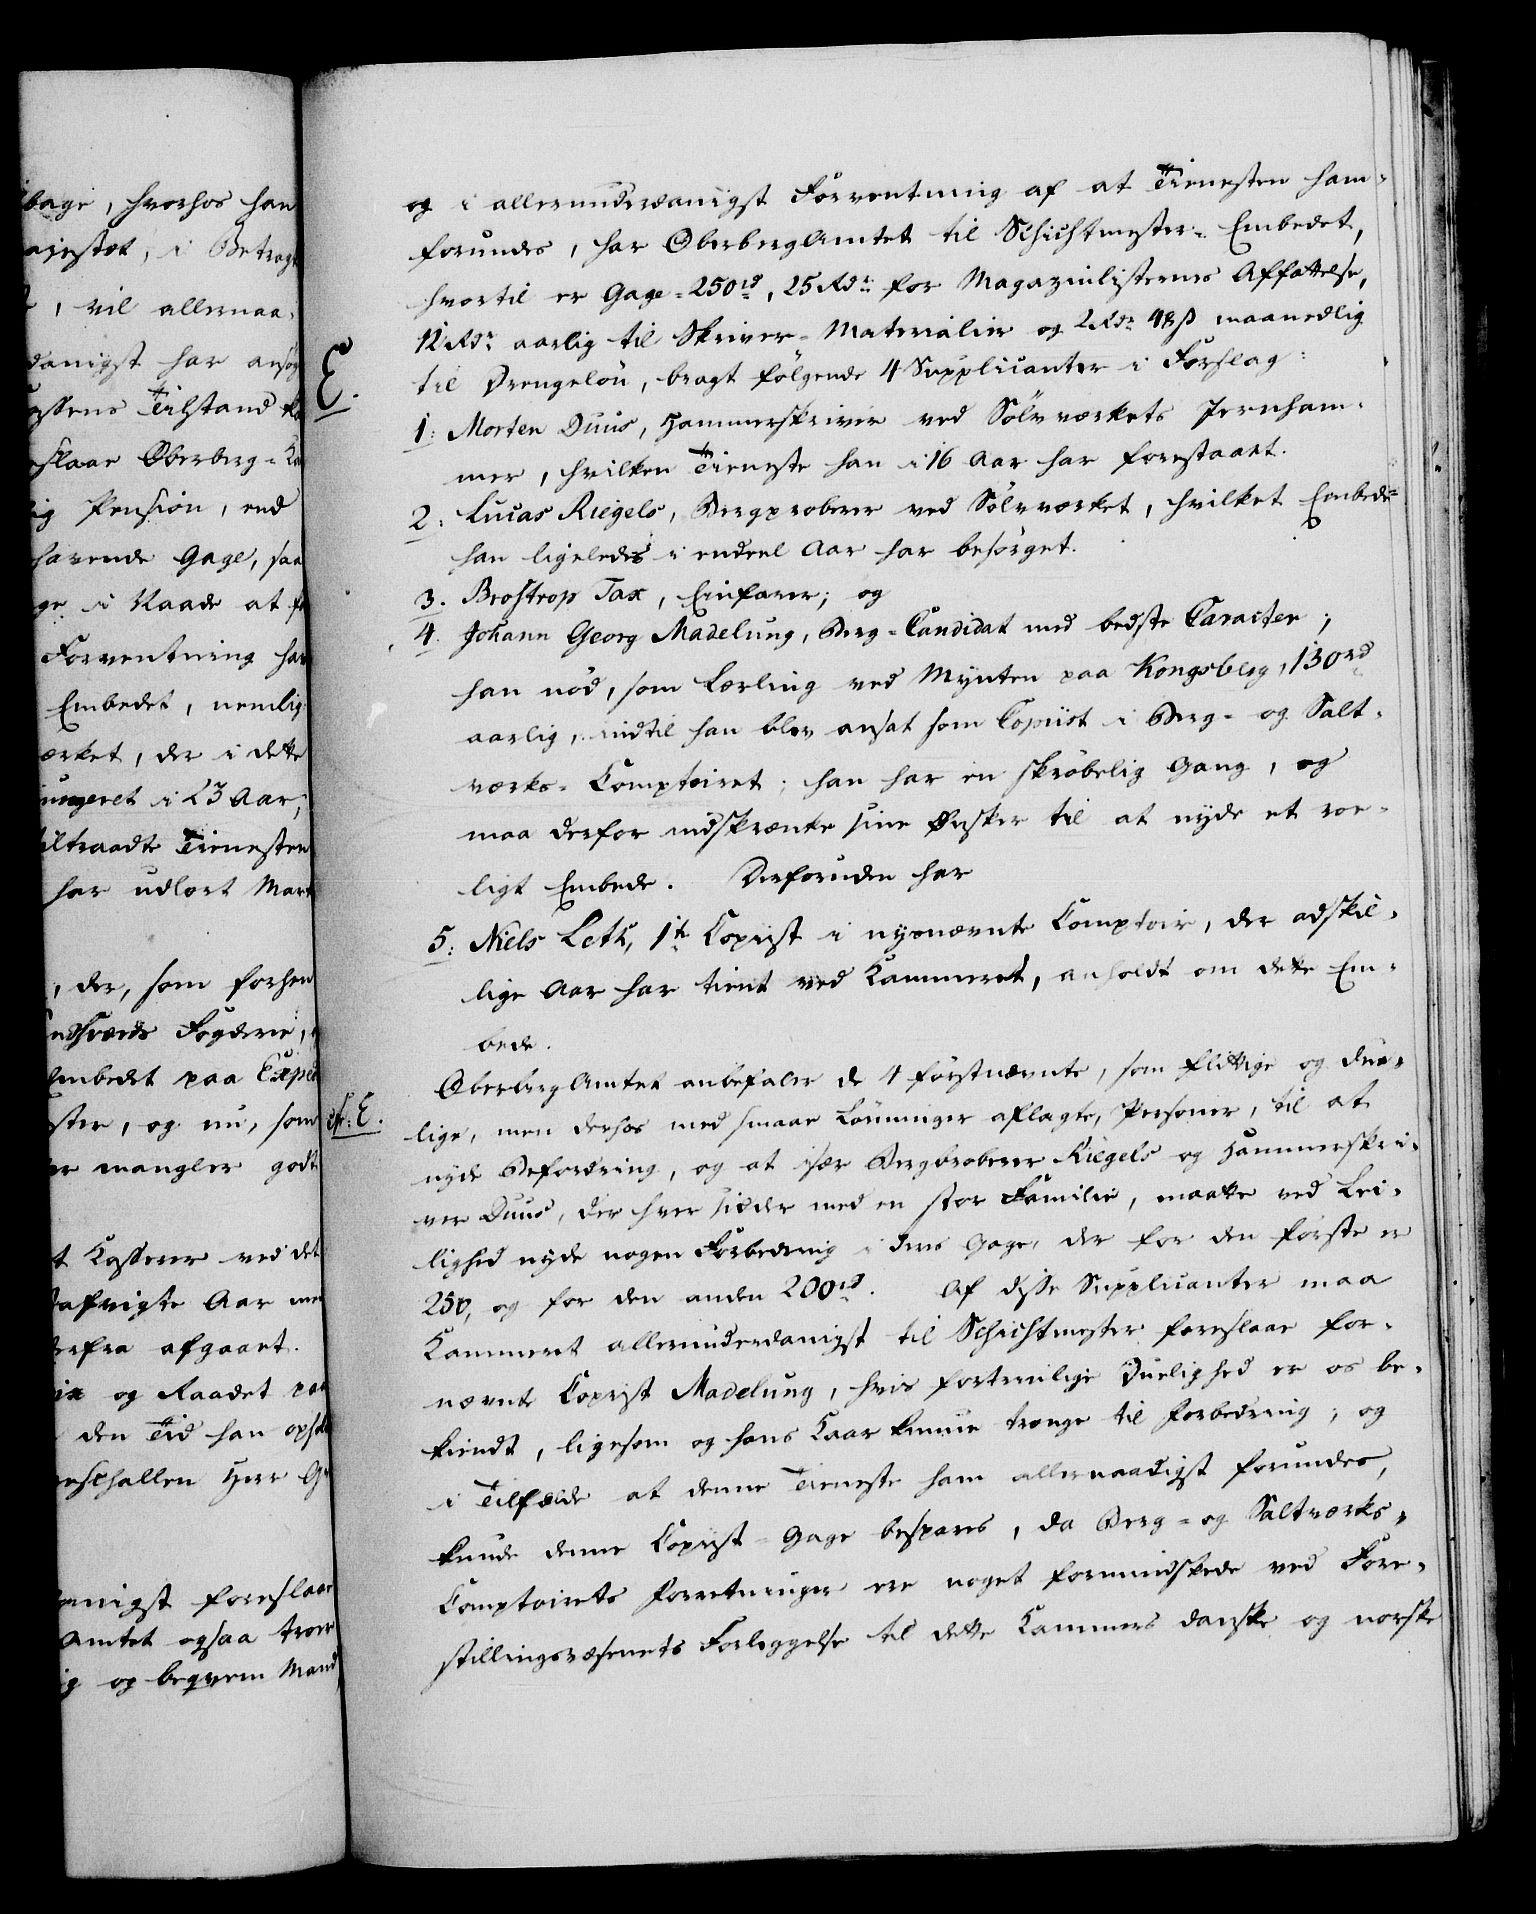 bage, hvorhos han
ajestæt, i Betragt
, vil allernaa-
danigst har ansøg
assens Tilstand
eslaae Oberberg-
ig Pension, end
havende Gage, saa
ge i Naade at
Forventning har
Embedet, nemlig
ærket, der i dette
ungeret i 23 Aar;
iltraadte Tienesten
har udlært Mark
, der, som forhen
Fogderie,
Embedet paa Exped
ster, og nu, som
er mangler godt
t Casserer ved det
afvigte Aar
erfra afgaaet.
og Raadet paa
den Tid han
eschallen Herr
anigst foreslaae
Amtet ogsaa troer
ig og beqvem Mand
og i allerunderdanigst Forventning af at Tienesten ham
forundes, har OberbergAmtet til Schichtmester-Embedet,
hvortil er Gage 250rd, 25 Rdr for Magazinlisternes Affattelse,
12 Rdr aarlig til Skriver-Materialier og 2 Rdr 48 ß maanedlig
E.
til Drengeløn, bragt følgende 4 Supplicanter i Forslag:
1: Morten Duus, Hammerskriver ved Sølvværkets Jernham-
mer, hvilken Tieneste han i 16 Aar har forestaaet.
2: Lucas Riegels, Bergproberer ved Sølvværket, hvilket Embede
han ligeledes i endeel Aar har besørget.
3. Brostrop Tax, Einfarer; og
4. Johann Georg Madelung, Berg-Candidat med bedste Caracter;
han nød, som Lærling ved Mynten paa Kongsberg, 130rd
aarlig, indtil han blev ansat som Copiist i Berg- og Salt-
værks-Comptoiret; han har en skrøbelig Gang, og
maa derfor indskrænke sine Ønsker til at nyde et roe-
ligt Embede. Desforuden har
5: Niels Leth, 1te Copist i nysnævnte Comptoir, der adskil-
lige Aar har tient ved Kammeret, anholdt om dette Em-
bede.
OberbergAmtet anbefaler de 4 førstnævnte, som flittige og due-
cfr: E.
lige, men derhos med smaae Lønninger aflagte, Personer, til at
nyde Befordring, og at især Bergproberer Riegels og Hammerskri-
ver Duus, der hver sidder med en stor Familie, maatte ved Lei-
lighed nyde nogen Forbedring i deres Gage, der for den første er
250, og for den anden 200rd. Af disse Supplicanter maa
Kammeret allerunderdanigst til Schichtmester foreslaae for-
nævnte Copist Madelung, hvis fortrinlige Duelighed er os be-
kiendt, ligesom og hans Kaar kunne trænge til Forbedring; og
i Tilfælde at denne Tieneste ham allernaadigst forundes,
kunde denne Copist-Gage bespares, da Berg- og Saltværks-
Comptoirets Forretninger ere noget formindskede ved Fore-
stillingsvæsenets Forlæggelse til dette Kammers danske og norske